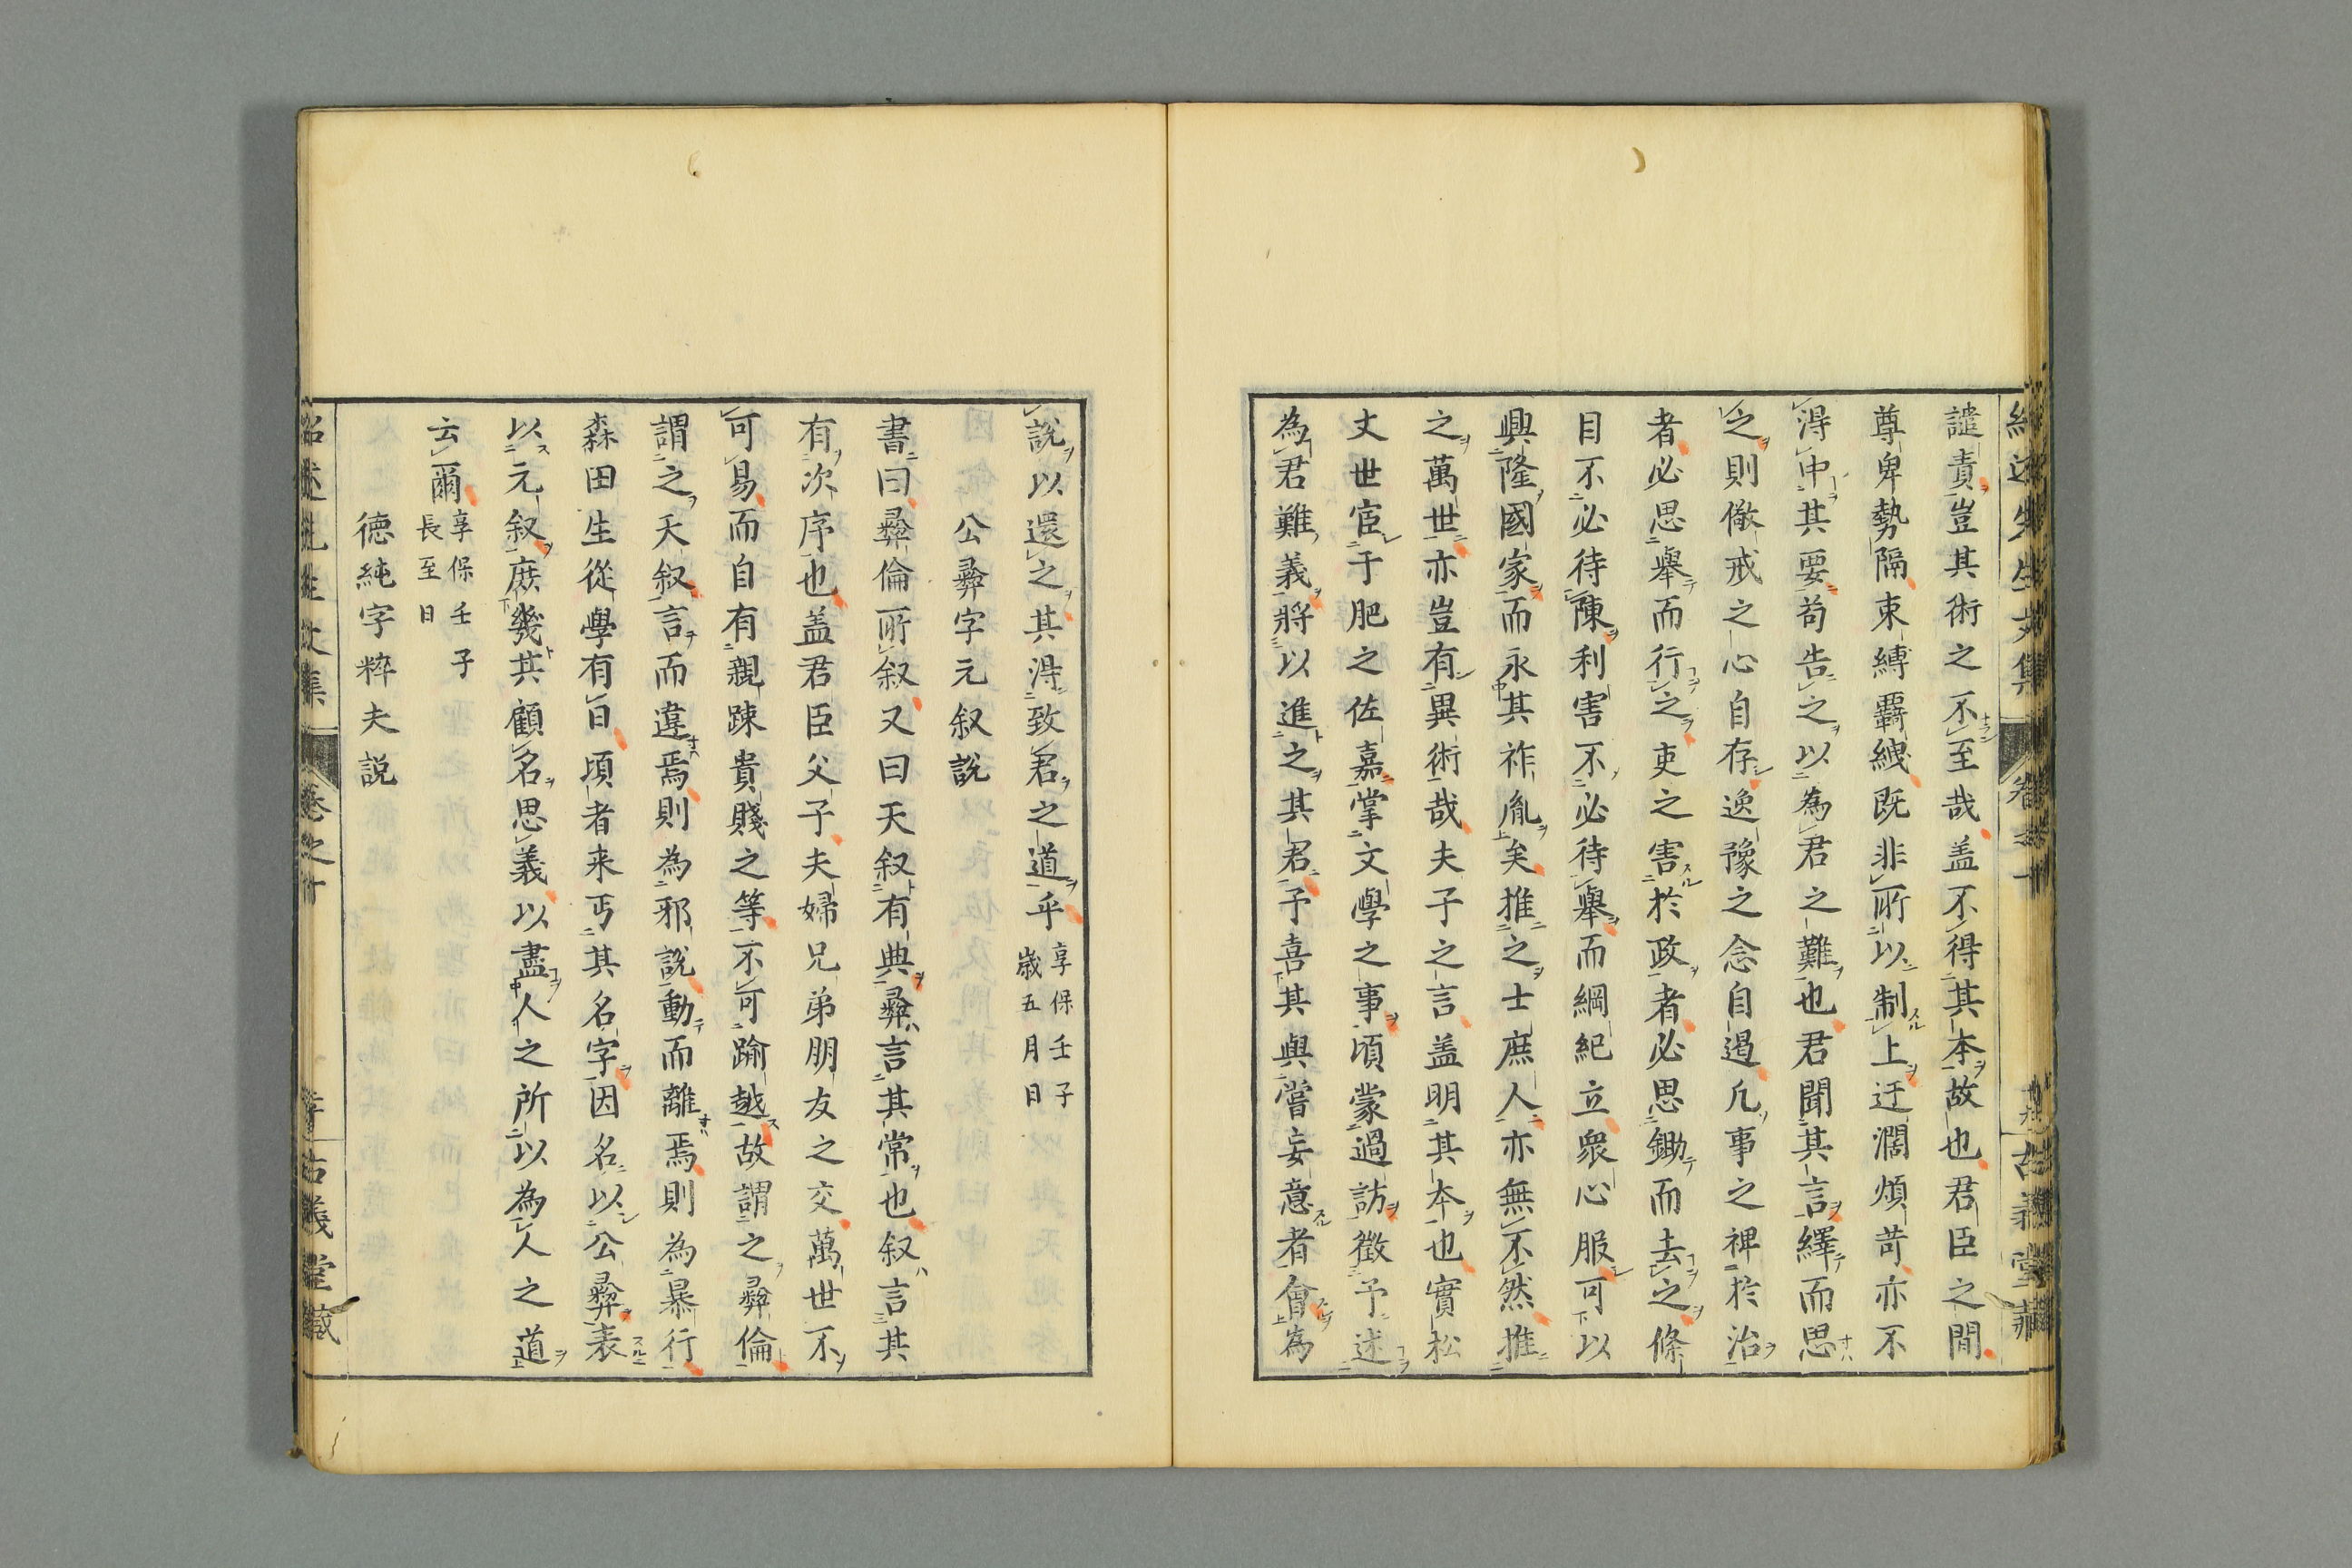 譴責豈其術之不至哉盖不得其本故也君臣之間
尊卑勢隔束縛覊絏既非所以制上迂濶煩苛亦不
淂中其要苟告之以為君之難也君聞其言繹而思
之則儆戒之心自存逸豫之念自遏凡事之裨於治
者必思舉而行之吏之害於政者必思鋤而去之條
目不必待陳利害不必待舉而綱紀立衆心服可以
興隆國家而永其祚胤矣推之士庶人亦無不然推
之萬世亦豈有異術哉夫子之言盖明其本也實松
丈世宦于肥之佐嘉掌文學之事頃蒙過訪徵予述
為君難義将以進之其君予喜其與嘗妄意者會為
說以還之其淂致君之道乎享保壬子歳五月日
公彜字元叙說
書曰彜倫所叙又曰天叙有典彜言其常也叙言其
有次序也盖君臣父子夫婦兄弟朋友之交萬世不
可易而自有親踈貴賤之等不可踰越故謂之彜倫
謂之天叙言而違焉則為邪說動而離焉則為暴行
森田生從學有日頃者来丐其名字因名以公彜表
以元叙庶幾其顧名思義以盡人之所以為人之道
云爾享保壬子長至日
德純字粹夫說
紹述先生文集 卷之十 古義堂藏